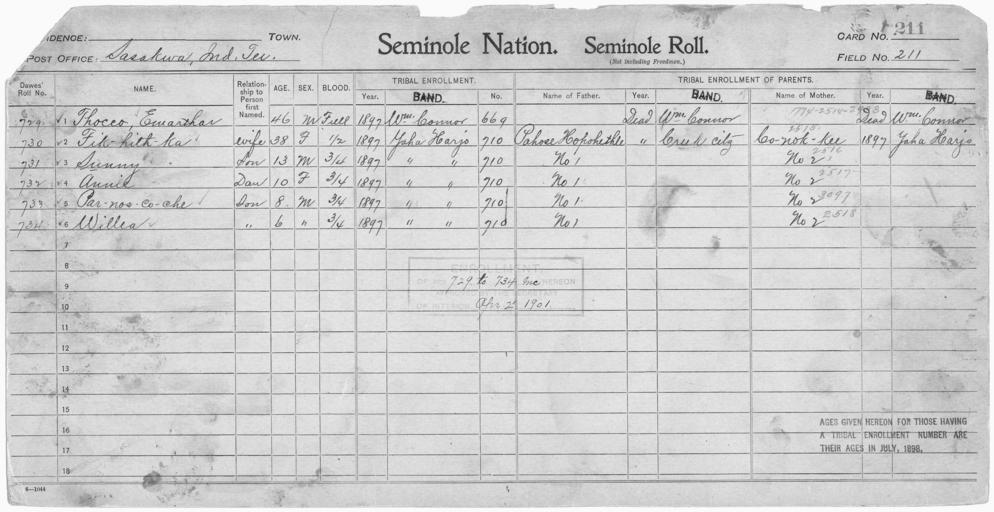 IDENCE: TOWN.
POST OFFICE: Sasakwa, Ind. Ter.
Seminole Nation. Seminole Roll.
(Not including Freedmen.)
CARD NO. 211
FIELD NO. 211
Dawes' Roll No. NAME. Relationship to Person first Named. AGE. SEX. BLOOD. TRIBAL ENROLLMENT. TRIBAL ENROLLMENT OF PARENTS.
Year. BAND. No. Name of Father. Year. BAND. Name of Mother. Year. BAND.
729 1 Thocco Emarthar 46 M Full 1897 Wm. Connor 669 Dead Wm Connor Dead Wm Connor
730 2 Fik-hith-ka wife 38 F 1/2 1897 Jaha Harjo 710 Pahose Hopohethle " Creek City Co-nok-kee 1897 Jaha Harjo
731 3 Sunny Son 13 M 3/4 1897 " " 710 No 1 No 2 2516
732 4 Annie Dau 10 F 3/4 1897 " " 710 No 1 No 2 2517
733 5 Par-nos-co-che Son 8 M 3/4 1897 " " 710 No 1 No 2 3097
734 6 Willea " 6 " 3/4 1897 " " 710 No 1 No 2 2518
7
8
ENROLLMENT
9 729 to 734 Inc HEREON
10 OF INTERIOR Apr 2 1901
11
12
13
14
15
16
17
18
AGES GIVEN HEREON FOR THOSE HAVING
A TRIBAL ENROLLMENT NUMBER ARE
THEIR AGES IN JULY, 1898.
6—1044